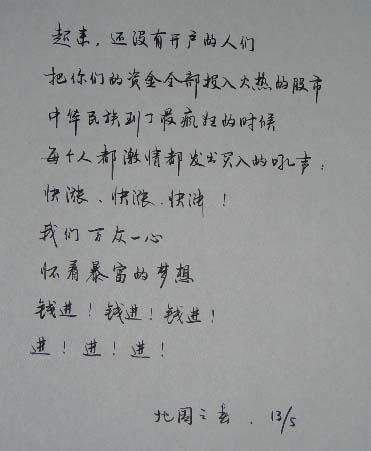 起来，还没有开户的人们
把你们的资金全部投入火热的股市
中华民族到了最疯狂的时候
每个人都激情都发出买入的吼声：
快涨、快涨、快涨！
我们万众一心
怀着暴富的梦想
钱进！钱进！钱进！
进！进！进！
北国之春．13/5